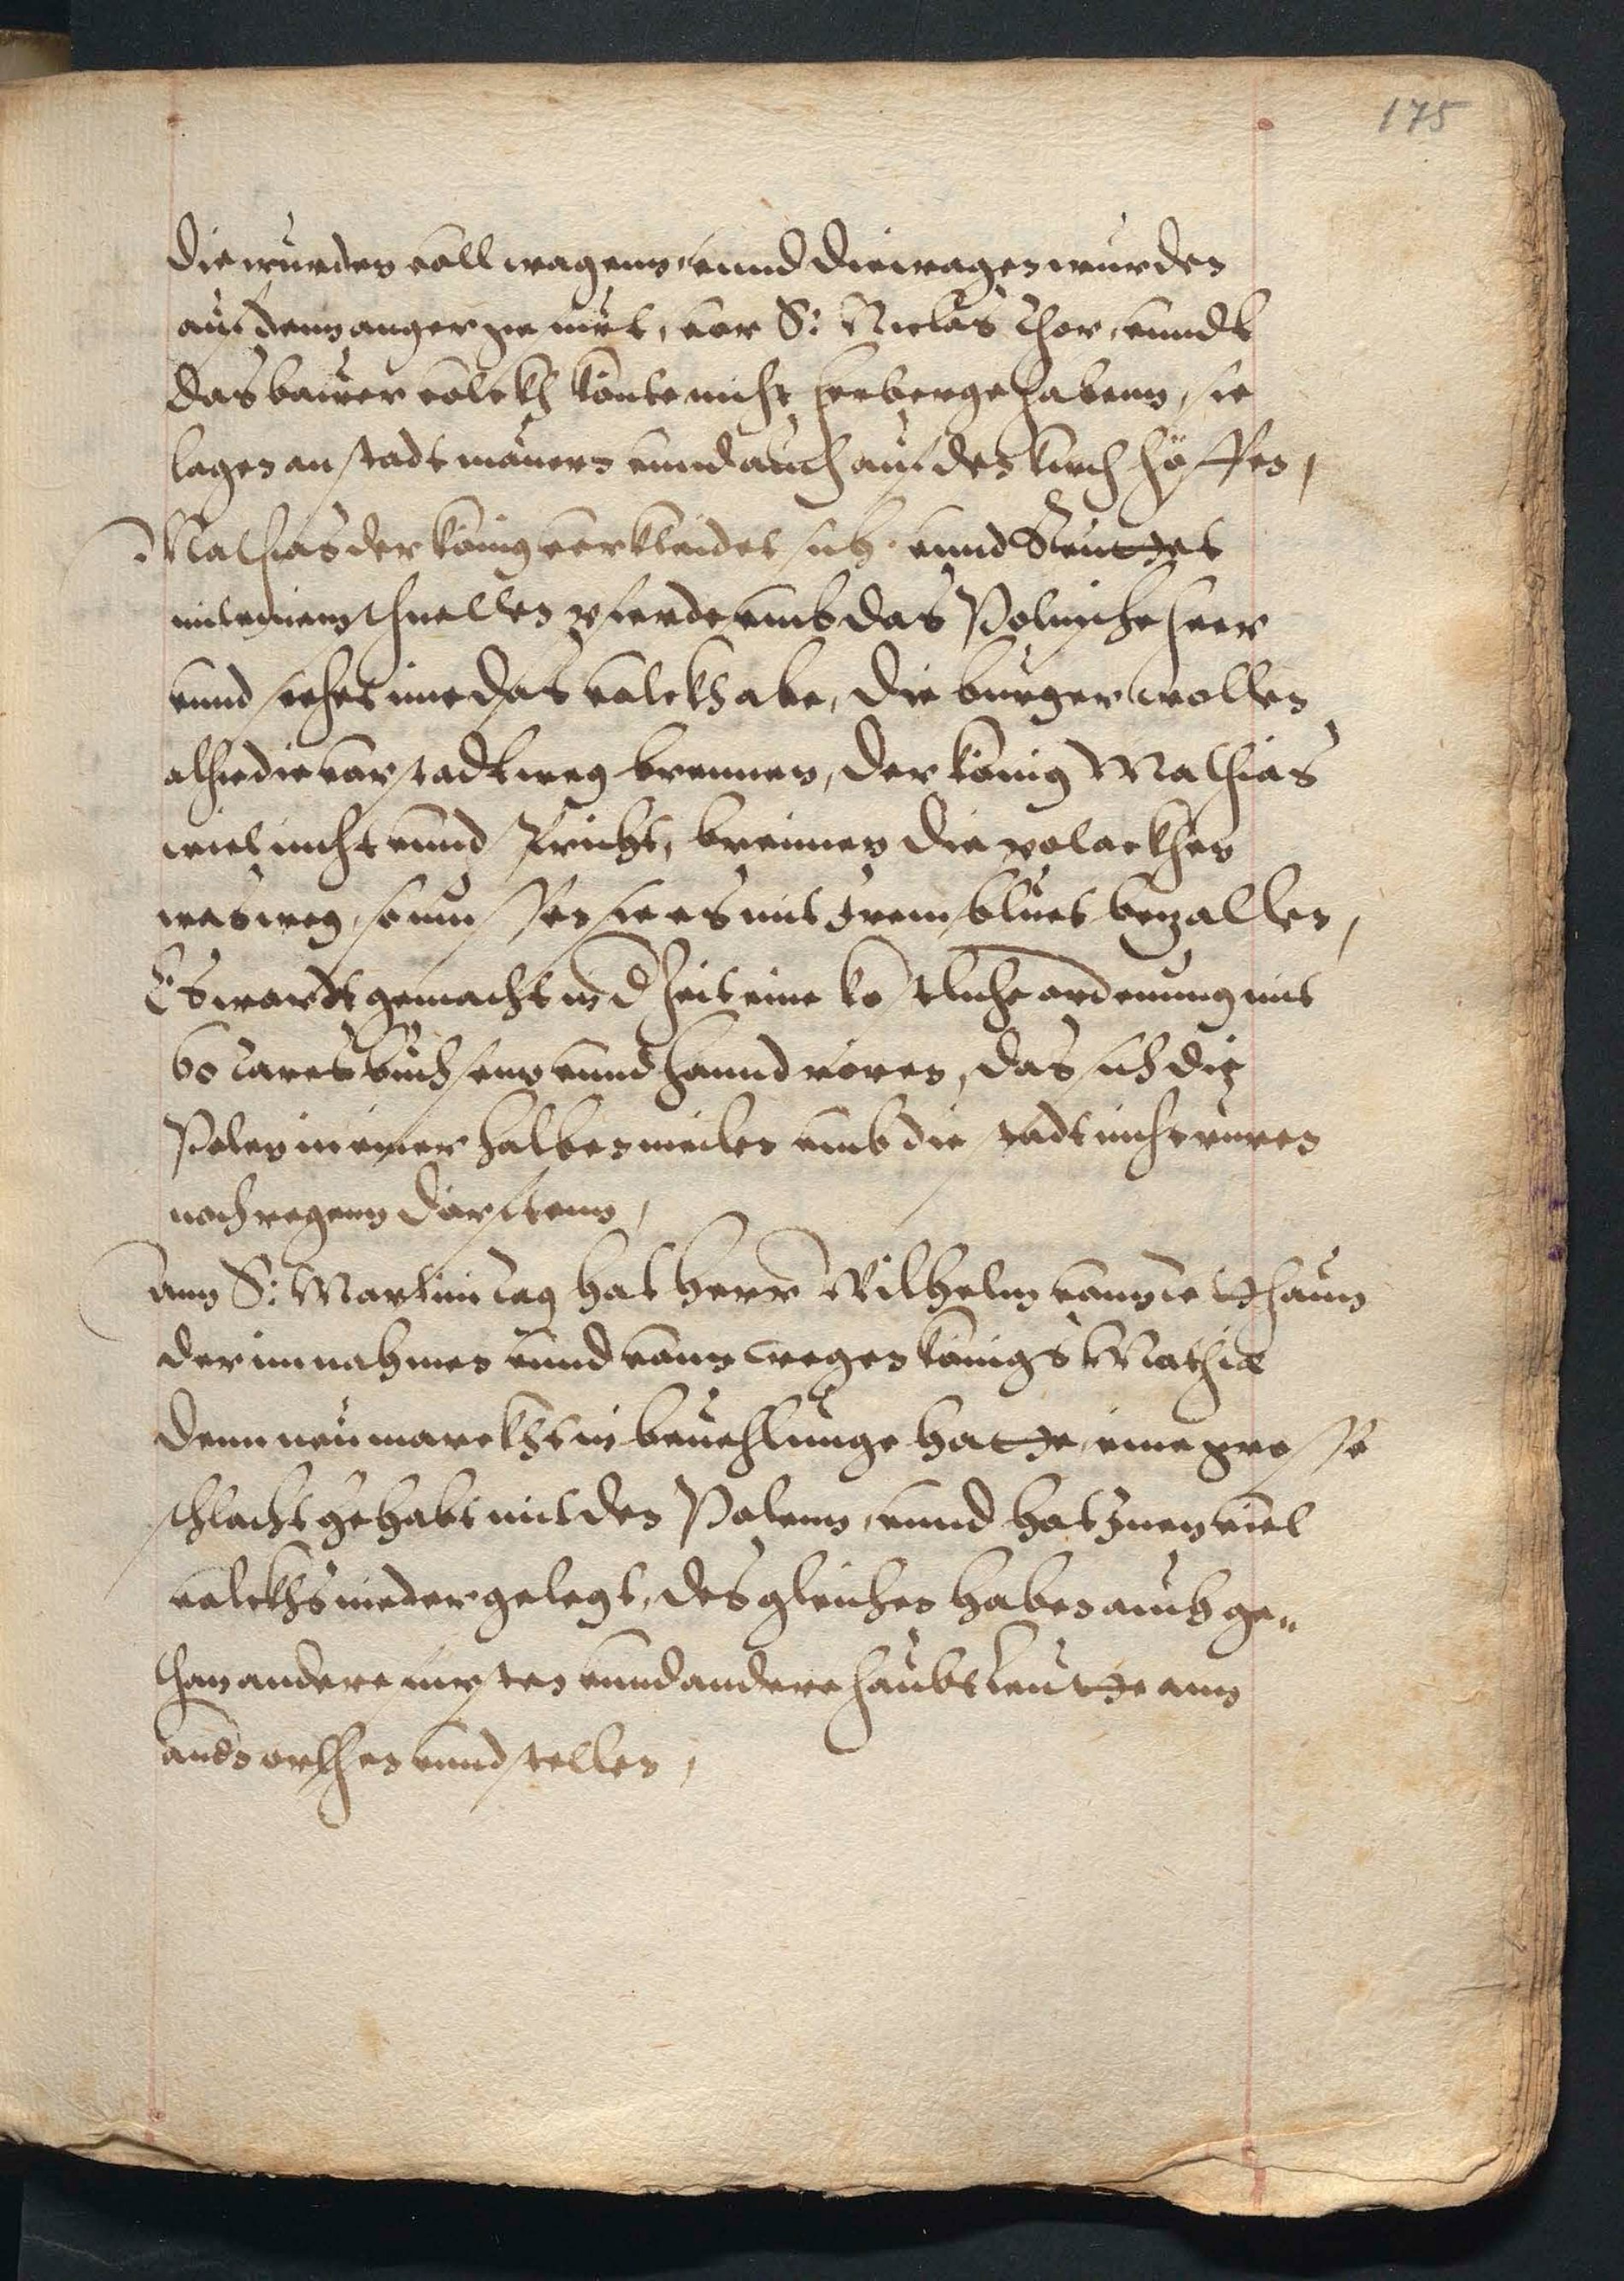 175
die wurden voll wagenn, unnd die wagen wurden
auf denn anger gefurt, vor S: Niclas thor, unndt
das bawer volckh konte nicht herberge habenn, sie
lagen an stadt mauern unnd auch auf den kirchhöffen,
Mathias der könig verkleidet sich unnd
mit einem schnellen pferde umb das Polnische heer
unnd sehet ime das volckh abe, die burger wollen
alhie die vorstadt weg brennen, der könig Mathias
wiel nicht unnd spricht, brennen die polackhen
was weg, so mussen sie es mit irem bluet bezallen,
Es wardt gemacht in d Zeit eine kostliche ordenung mit
60 Tares buchsenn unnd hannd roren, das sich die
Polen in einer halben meilen umb die stadt nicht ruren
noch regenn dorfftenn,
Ann S: Martini tag hat herr Wilhelm vonn
der im nahmen unnd vonn wegen königs Mathiæ
denn neumarckht in beuehlunge hatte, eine grosse
schlacht gehabt mit den Polenn, unnd hat Inen viel
volckhs nieder gelegt, des gleichen haben auch ge„
than andere fursten unnd andere haubtleutte ann
andn orthen unnd stellen,